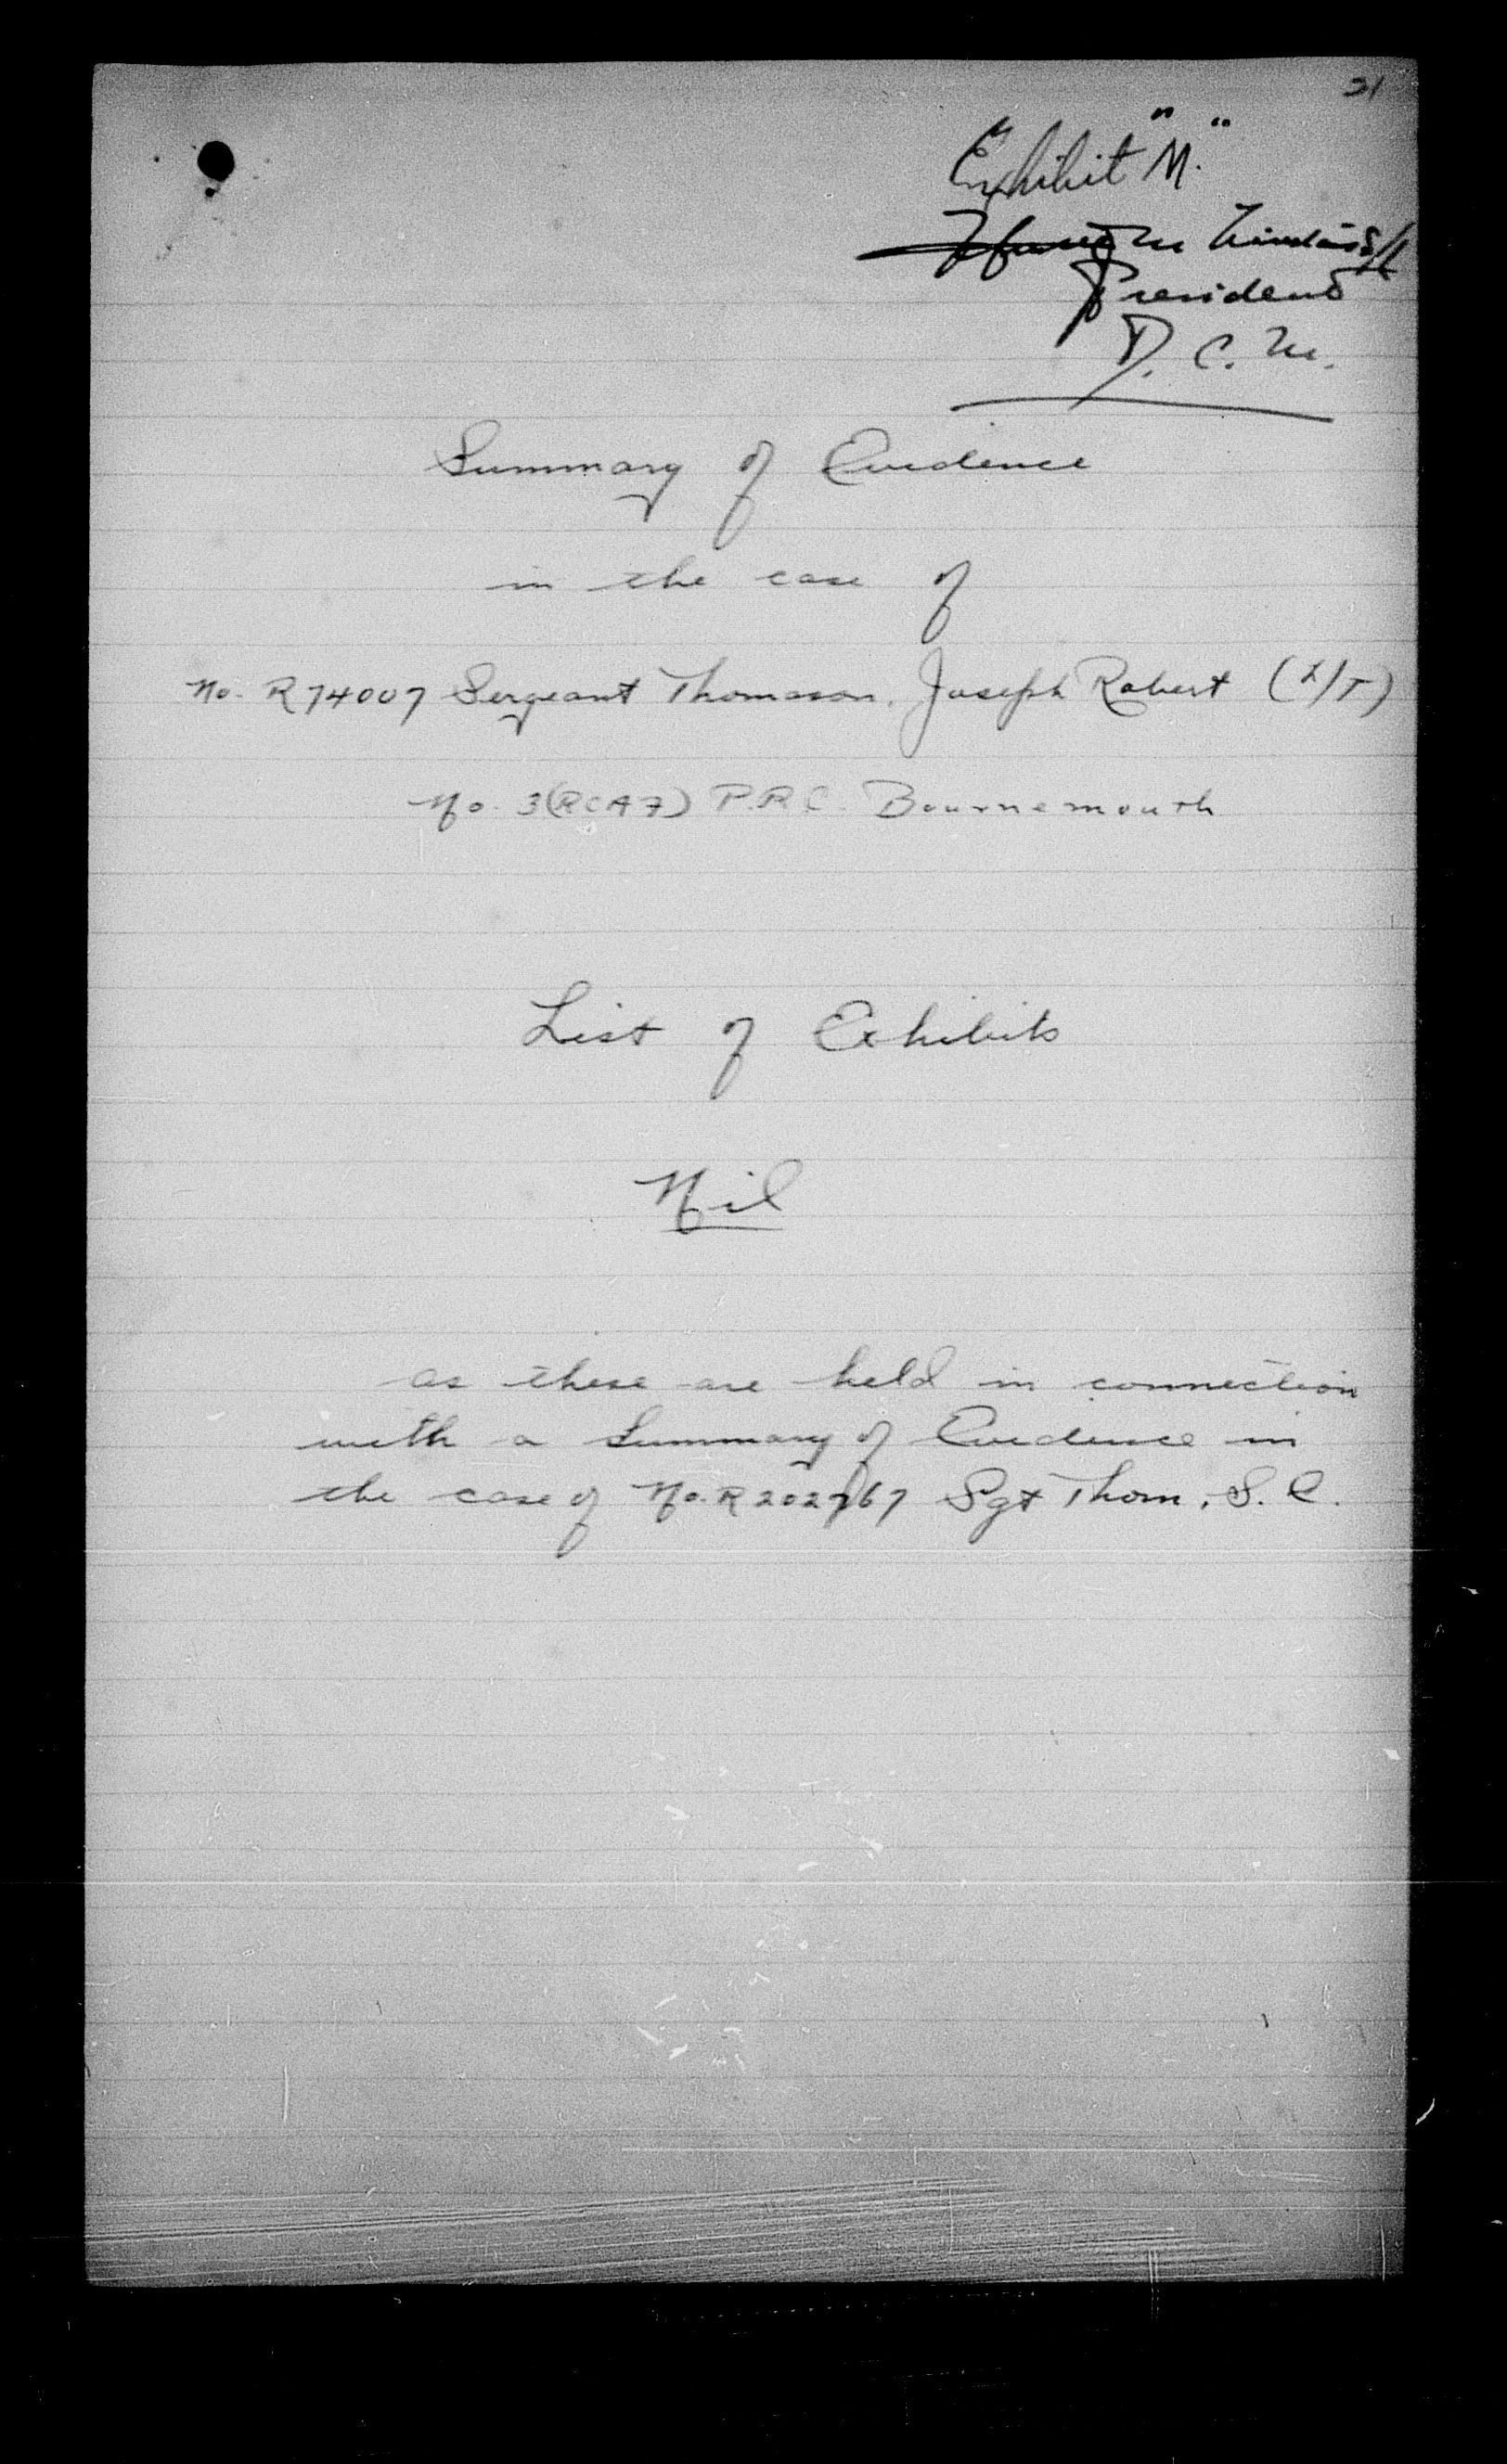 21
Exhibit "M."
President
D. C. M.
Summary of Evidence
in the case of
No. R74007 Sergeant Thomason, Joseph Robert (L/T)
No. 3(RCAF) P.R.C. Bournemouth
List of Exhibits
Nil
as these are held in connection
with a Summary of Evidence in
the case of No. R202767 Sgt Thom, S. C.